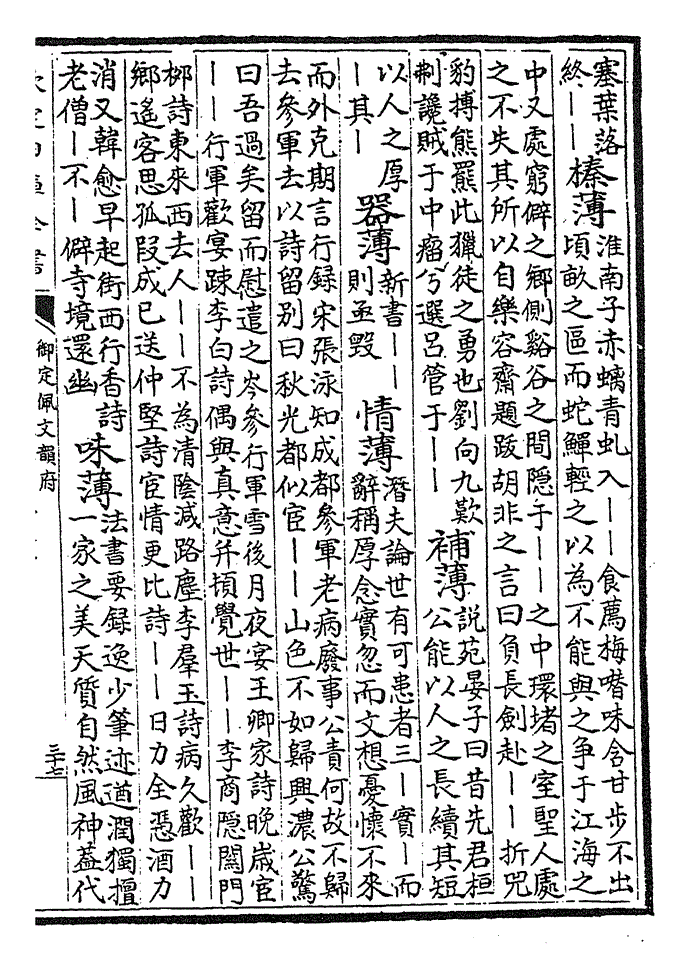 塞葉落
終——
榛薄
淮南子赤螭青虬入——食薦梅嚌味含甘步不出
頃畝之區而蛇鱓輕之以為不能與之争于江海之
中又處窮僻之鄉側谿谷之間隱于——之中環堵之室聖人處
之不失其所以自樂容齋題跋胡非之言曰負長劍赴——折兕
豹搏熊羆此獵徒之勇也劉向九歎
制讒賊于中瘤兮選吕管于——
補薄
說苑晏子曰昔先君桓
公能以人之長續其短
以人之厚
—其—
器薄
新書——
則亟毀
情薄
潛夫論世有可患者三—實—而
辭稱厚念實忽而文想憂懷不來
而外克期言行録宋張泳知成都參軍老病廢事公責何故不歸
去參軍去以詩留别曰秋光都似宦——山色不如歸興濃公驚
曰吾過矣留而慰遣之岑參行軍雪後月夜宴王卿家詩晚歳宦
——行軍歡宴踈李白詩偶與真意并頓覺世——李商隠關門
栁詩東來西去人——不為清陰減路塵李羣玉詩病久歡——
鄉遙客思孤段成已送仲堅詩宦情更比詩——日力全憑酒力
消又韓愈早起街西行香詩
老僧—不—僻寺境還幽
味薄
法書要録逸少筆迹遒潤獨擅
一家之美天質自然風神蓋代
欽定四庫全書
御定佩文韻府
三十七